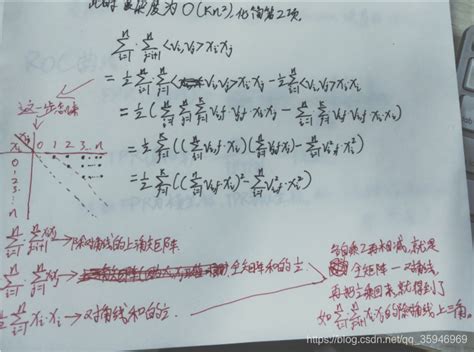 此时复杂度为O(Kn²),化简第2项.
∑_{i=1}^{n}·∑_{j=i+1}^{n}<v_i,v_j>x_i x_j
= ½∑_{i=1}^{n}·∑_{j=1}^{n}<v_i,v_j>x_i x_j - ½∑_{i=1}^{n}<v_i,v_i>x_i x_i
= ½(∑_{i=1}^{n}∑_{j=1}^{n}∑_{f=1}^{K}v_{i,f}·v_{j,f}·x_i x_j - ∑_{i=1}^{n}∑_{f=1}^{K}v_{i,f}·v_{i,f}·x_i x_i)
= ½∑_{f=1}^{K}((∑_{i=1}^{n}v_{i,f}·x_i)(∑_{j=1}^{n}v_{j,f}x_j) - ∑_{i=1}^{n}v_{i,f}²x_i²)
= ½∑_{f=1}^{K}((∑_{i=1}^{n}v_{i,f}·x_i)² - ∑_{i=1}^{n}v_{i,f}²·x_i²)
这一步
0 1 2 3... n
0
1
2
3
n
∑_{i=1}^{n}·∑_{j=i+1}^{n}x_i x_j → 除对角线的上三角矩阵.
∑_{i=1}^{n}·∑_{j=1}^{n}x_i x_j → 全矩阵和的½.
∑_{i=1}^{n}x_i·x_i → 对角线和的½.
各自乘½再相减,就是
全矩阵-对角线,
再把½乘回来,就得到了
如∑_{i=1}^{n}·∑_{j=i+1}^{n}x_i·x_j的除对角线上三角.
https://blog.csdn.net/qq_35946969